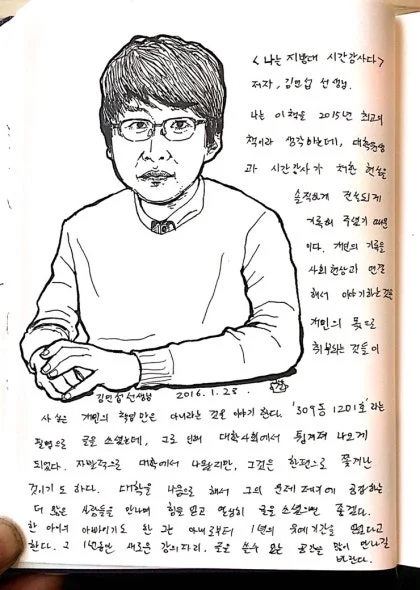 <나는 지방대 시간강사다>
저자, 김민섭 선생님.
나는 이 책을 2015년 최고의
책이라 생각하는데, 대학운영
과 시간강사가 처한 현실을
솔직하게 진술되게
기록해 주셨기 때문
이다. 개인의 기록을
사회현상과 연결
해서 이야기하는 것은
개인의 몫으로
취부되는 것들이
김민섭 선생님 2016.1.23.
사실은 개인의 책임만은 아니라는 것을 이야기 한다. '309동 1201호'라는
필명으로 글을 쓰셨는데, 그로 인해 대학사회에서 튕겨져 나오게
되었다. 자발적으로 대학에서 나왔지만, 그것은 한편으로 쫓겨난
것이기도 하다. 대학을 나옴으로 해서 그의 문제제기에 공감하는
더 많은 사람들을 만나며 힘을 얻고 열심히 글을 쓰셨으면 좋겠다.
한 아이의 아빠이기도 한 그는 아내로부터 1년의 유예기간을 얻었다고
한다. 그 1년동안 새로운 강의자리, 글을 쓸 수 있는 공간을 많이 만나길
바란다.